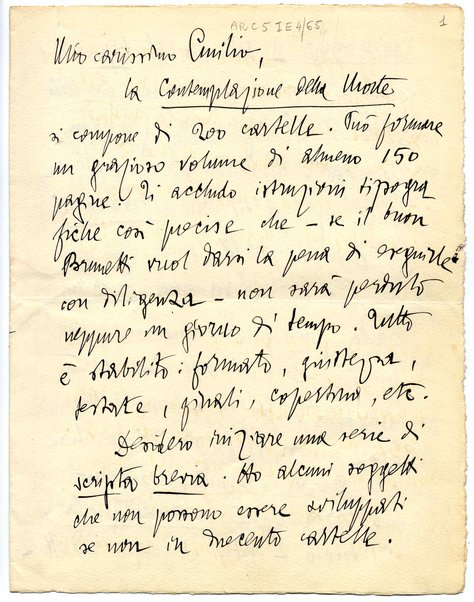 ARC 5 I E 4/65
1
Mio carissimo Emilio,
la Contemplazione della Morte
si compone di 200 cartelle. Può formare
un grazioso volume di almeno 150
pagine. Ti accludo istruzioni tipogra
fiche così precise che – se il buon
Brunetti vuol darsi la pena di eseguirle
con diligenza – non sarà perduto
neppure un giorno di tempo. Tutto
è stabilito: formato, giustezza,
testate, finali, copertina, etc.
Desidero iniziare una serie di
scripta brevia. Ho alcuni soggetti
che non possono essere sviluppati
se non in duecento cartelle.